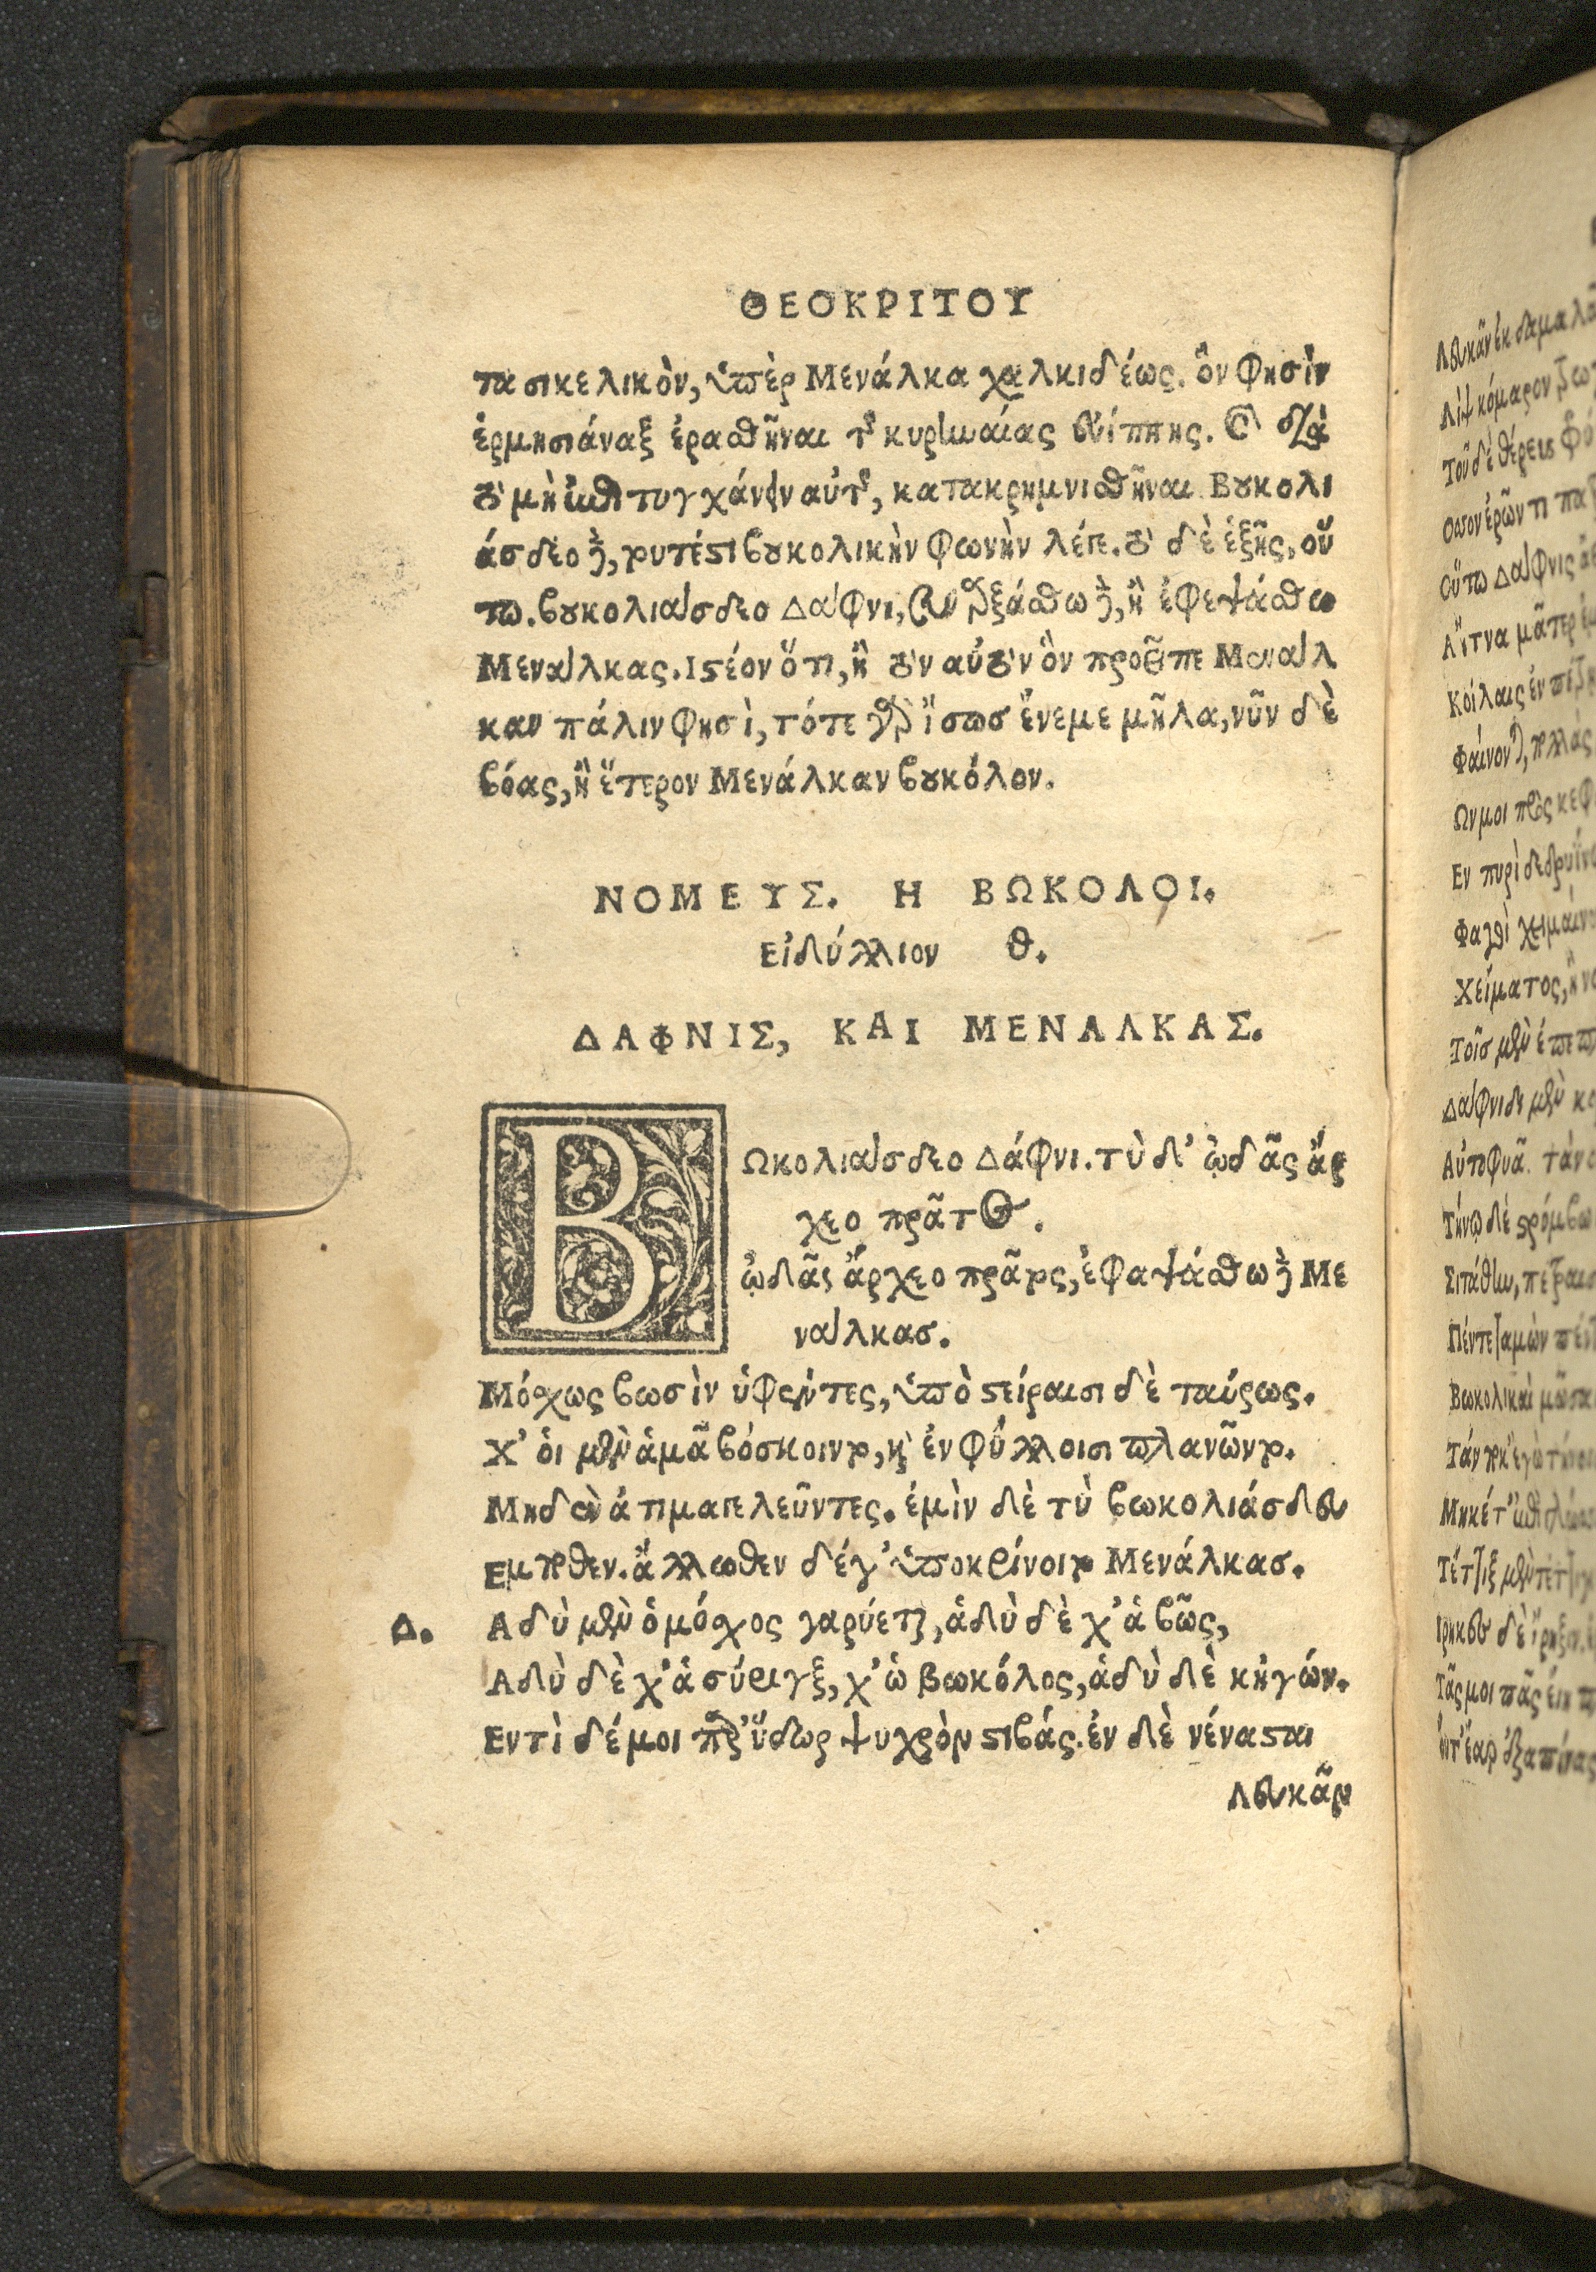 ΘΕΟΚΡΙΤΟΥ
τα σικελικὸν, ὑπὲρ Μενάλκα χαλκιδέως. ὅν φησὶν
ἑρμησιάναξ ἐρασθῆναι τῆς κυρηναίας εὐίππης. καὶ διὰ
τὸ μὴ ἐπιτυγχάνειν αὐτῆς, κατακρημνισθῆναι. Βουκολι
άσδεο καὶ, τουτέστι βουκολικὴν φωνὴν λέγε. τὸ δὲ ἑξῆς, οὕ
τω. βουκολιάσδεο Δάφνι, συναψάσθω καὶ, ἢ ἐφεψάσθω
Μενάλκας. Ιστέον ὅτι, ἢ τὸν αὐτὸν ὃν προεῖπε Μενάλ
καν πάλιν φησὶ, τότε γὰρ ἴσωσ ἔνεμε μῆλα, νῦν δὲ
βόας, ἢ ἕτερον Μενάλκαν βουκόλον.
ΝΟΜΕΥΣ. Η ΒΩΚΟΛΟΙ.
Εἰδύλλιον θ.
ΔΑΦΝΙΣ, ΚΑΙ ΜΕΝΑΛΚΑΣ.
ΒΩκολιάσδεο Δάφνι. τὺ δ' ᾠδᾶς ἄρ
χεο πρᾶτος.
ᾠδᾶς ἄρχεο πρᾶτος, ἐφαψάσθω καὶ Με
νάλκασ.
Μόσχως βωσὶν ὑφέντες, ὑπὸ στείραισι δὲ ταύρως.
Χ' οἱ μὲν ἁμᾶ βόσκοιντο, καὶ ἐν φύλλοισι πλανῶντο.
Μηδὲν ἀτιμαγελεῦντες. ἐμὶν δὲ τὺ βωκολιάσδευ
Εμποθεν. ἄλλωθεν δέ γ' ὑποκρίνοιτο Μενάλκασ.
Δ. Αδὺ μὲν ὁ μόσχος γαρύεται, ἁδὺ δὲ χ' ἁ βῶς,
Αδὺ δὲ χ' ἁ σύριγξ, χ' ὡ βωκόλος, ἁδὺ δὲ κἠγών.
Εντὶ δέ μοι παρ' ὕδωρ ψυχρὸν στιβάς. ἐν δὲ νένασται
Λευκᾶν